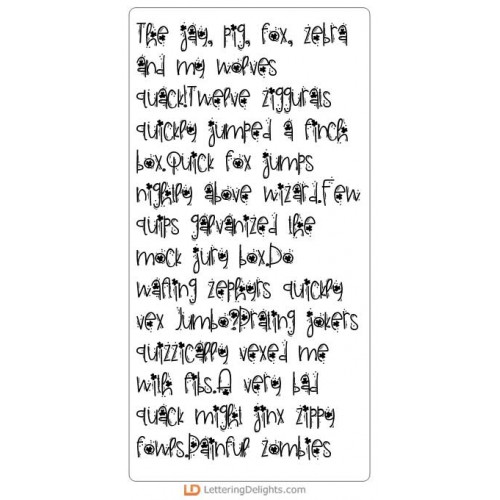 The jay, pig, fox, zebra
and my wolves
quack!Twelve ziggurats
quickly jumped a finch
box.Quick fox jumps
nightly above wizard.Few
quips galvanized the
mock jury box.Do
wafting zephyrs quickly
vex Jumbo?Prating jokers
quizzically vexed me
with fibs.A very bad
quack might jinx zippy
fowls.Painful zombies
LD LetteringDelights.com